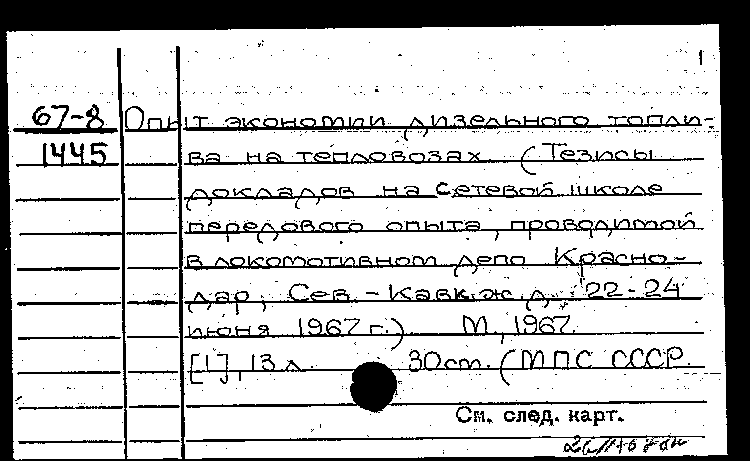 1
67-8 Опыт экономии дизельного топли-
1445 ва на тепловозах (Тезисы
докладов на сетевой школе
передового опыта, проводимой
в локомотивном депо Красно-
дар, Сев.-Кавк.ж.д. 22-24
июня 1967 г.) М., 1967.
[1], 13 л. 30см. (МПС СССР.
См. след. карт.